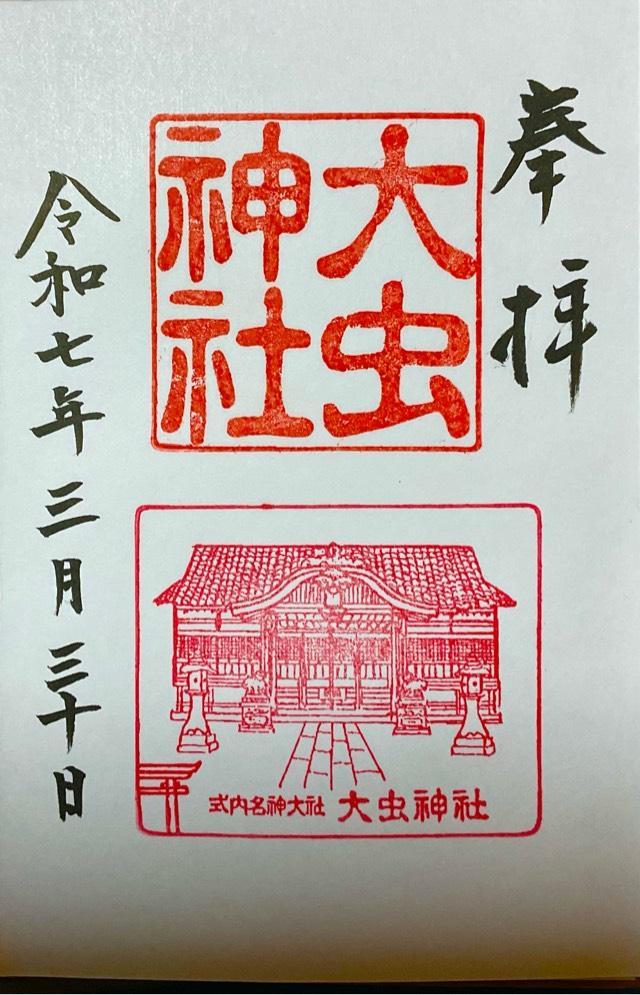 奉拝
大虫
神社
式内名神大社 大虫神社
令和七年三月三十日